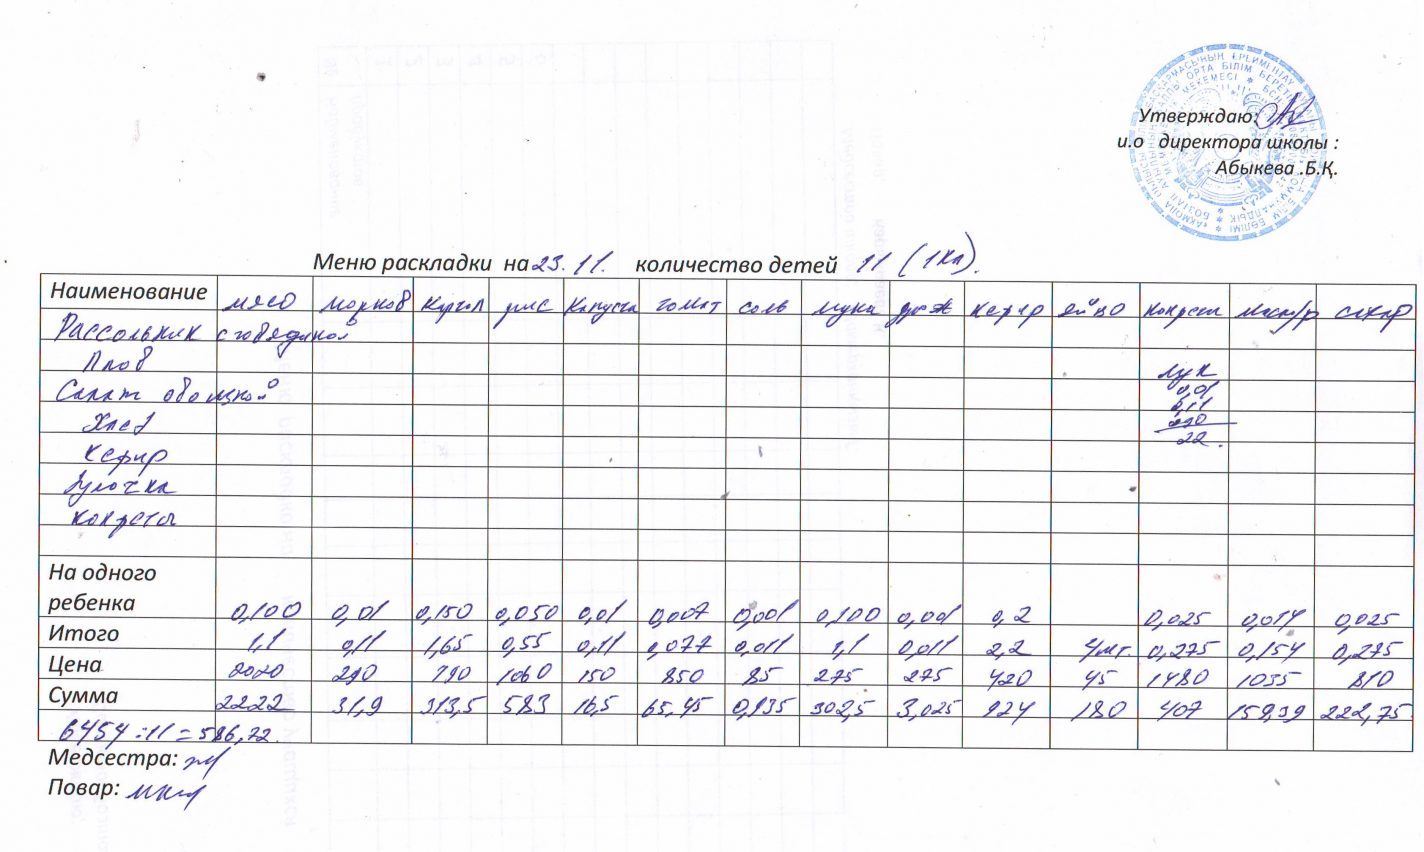 Утверждаю:
и.о директора школы :
Абыкева .Б.Қ.
Меню раскладки на 23. 11. количество детей 11 (1кл).
Наименование мясо морков картоп рис капуста томат соль мука дрож кефир яйцо конфеты масло/р сахар
Рассольник с говядиной
Плов лук
Салат овощной 0,01
0,11
Хлеб 290
22.
Кефир
Булочка
конфеты
На одного
ребенка 0,100 0,01 0,150 0,050 0,01 0,007 0,001 0,100 0,001 0,2 0,025 0,014 0,025
Итого 1,1 0,11 1,65 0,55 0,11 0,077 0,011 1,1 0,011 2,2 4шт. 0,275 0,154 0,275
Цена 2020 290 190 1060 150 850 85 275 275 420 45 1480 1035 810
Сумма 2222 31,9 313,5 583 16,5 65,45 0,935 302,5 3,025 924 180 407 159,39 222,75
6454 :11 = 586,72.
Медсестра:
Повар: